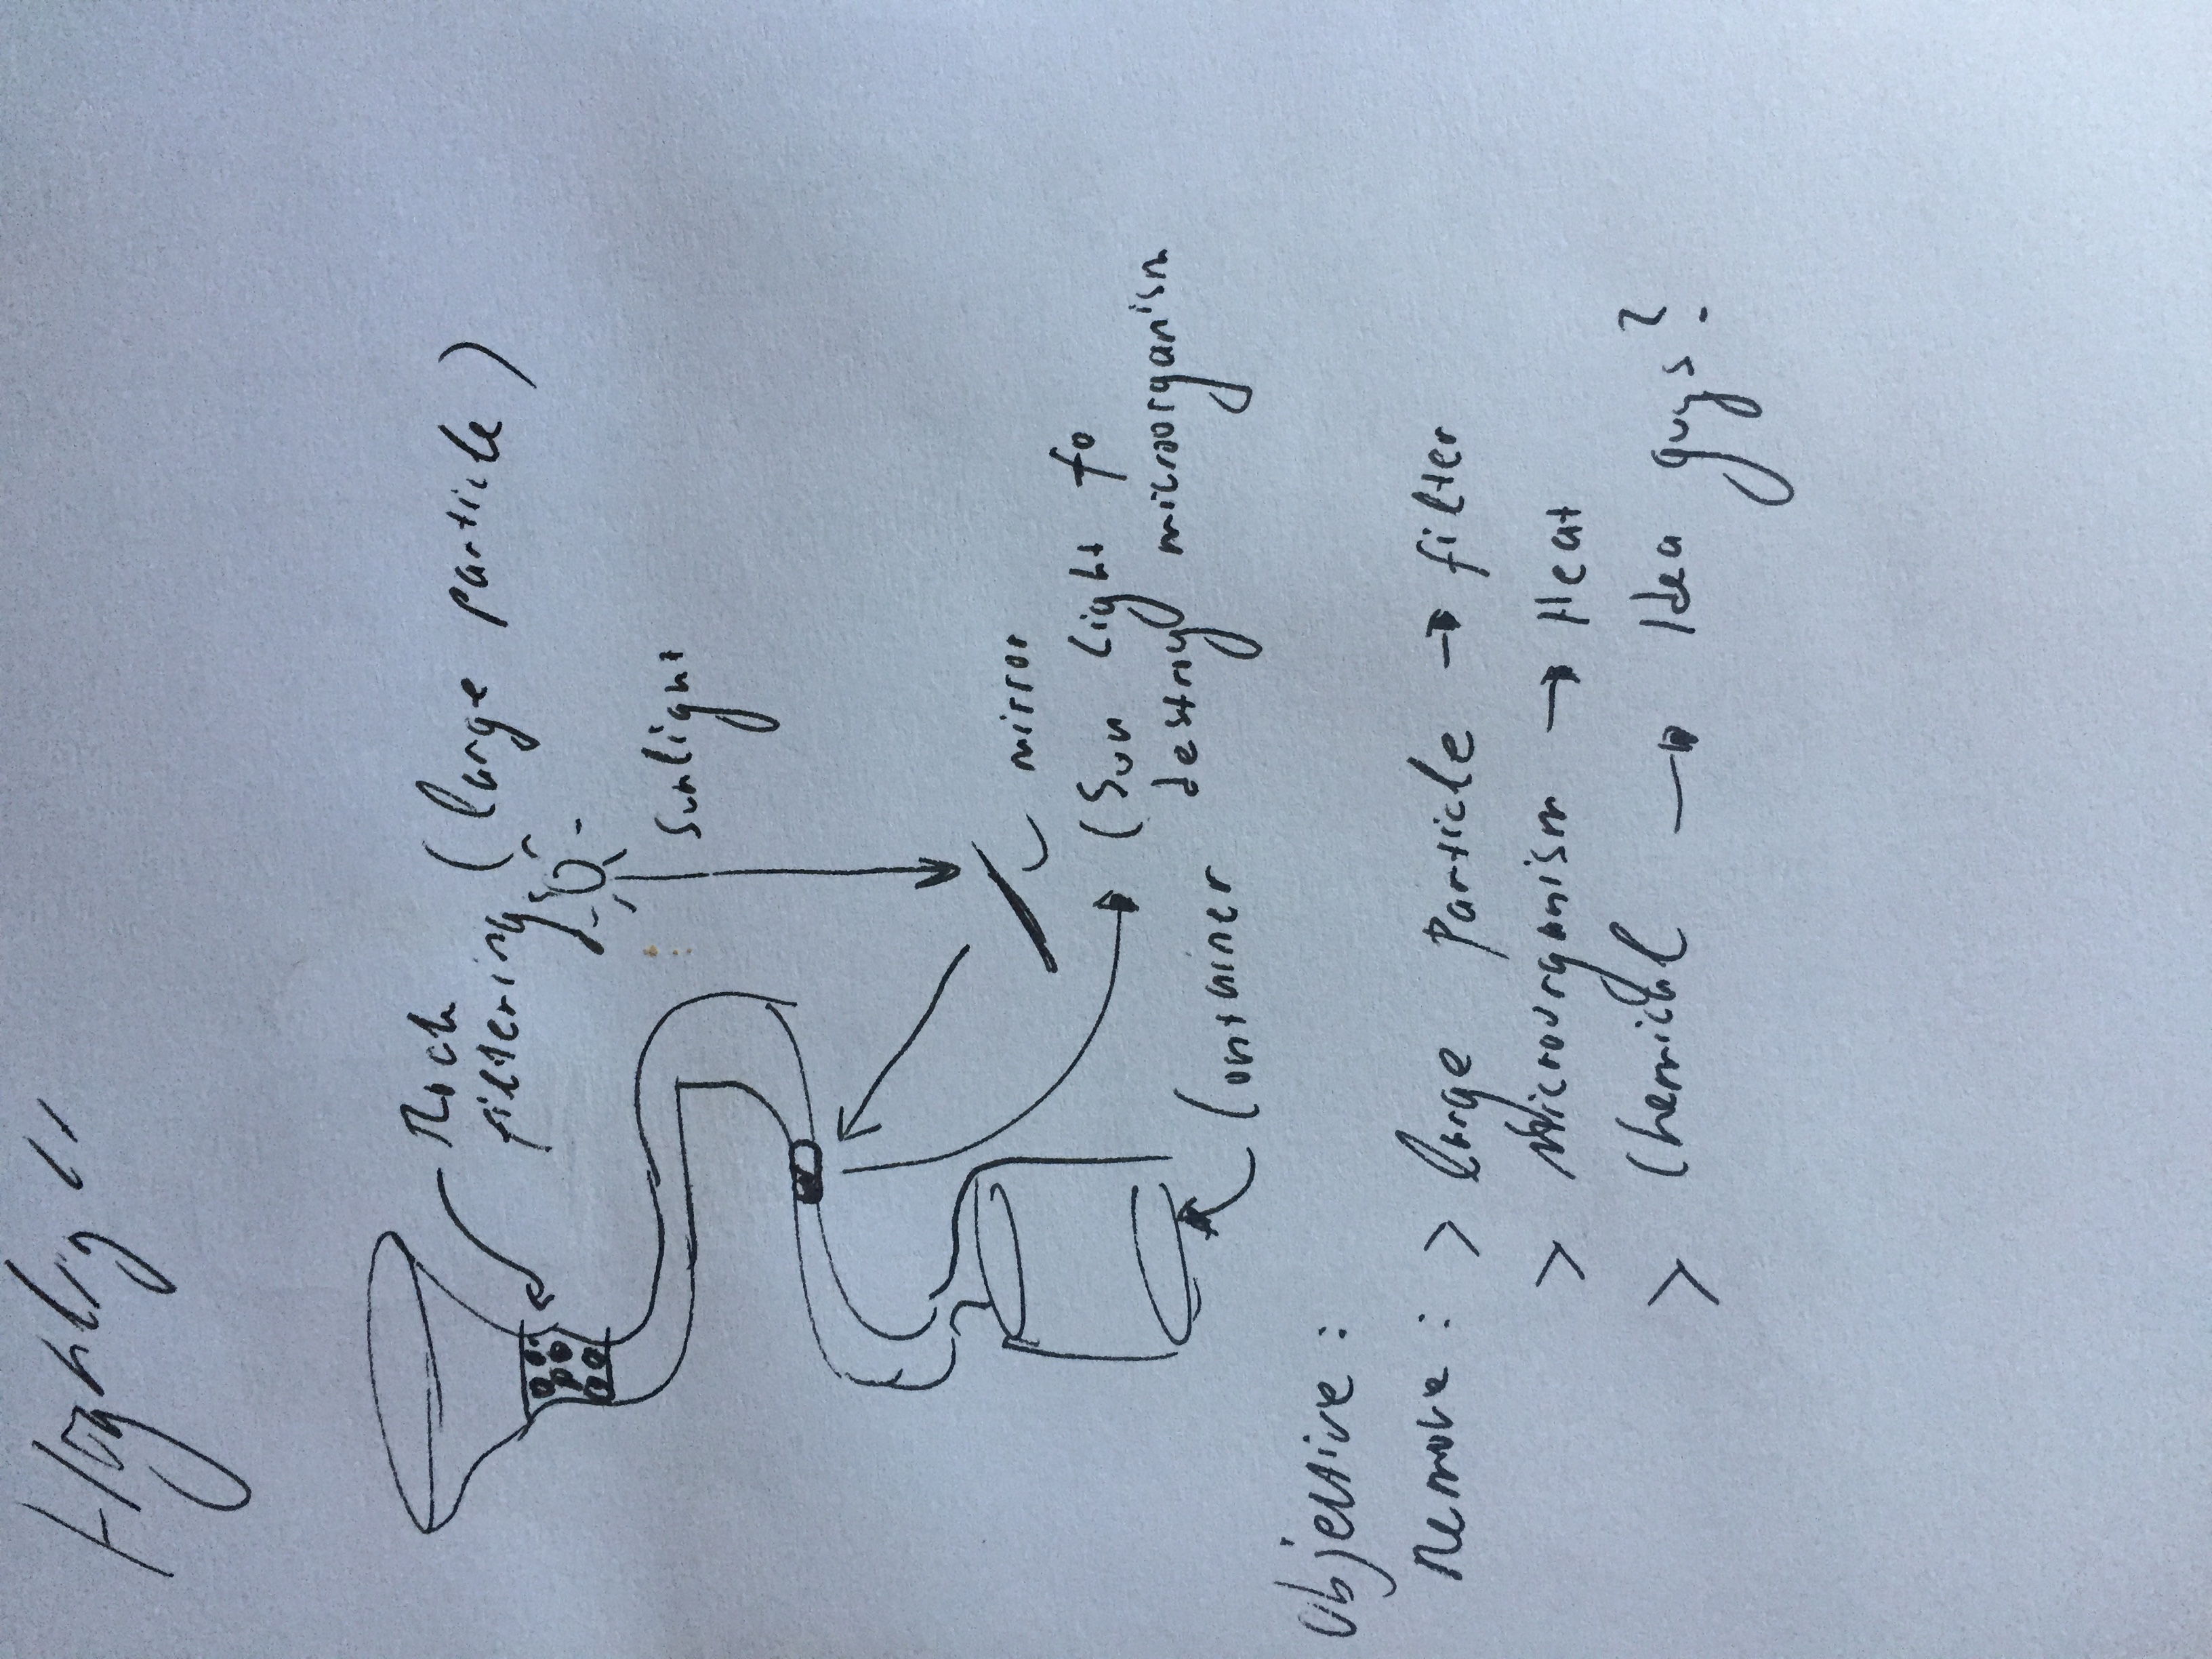 Highlight
Rock
filtering (large particle)
Sunlight
mirror
(Sun light to
destroy microorganism
Container
Objective:
Remove: > large particle → filter
> Microorganism → Heat
> Chemical → Idea guys?